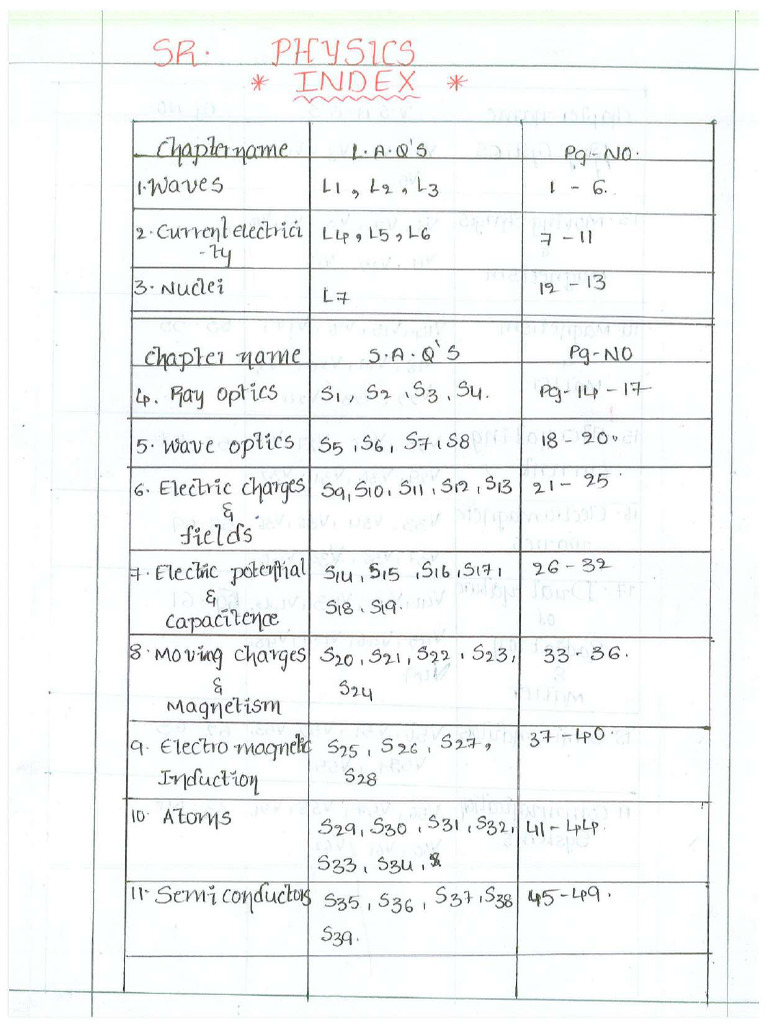 SR. PHYSICS
* INDEX *
Chaptername L.A.Q'S Pg-NO.
1.Waves L1, L2, L3 1 - 6.
2.Current electrici L4, L5, L6 7 - 11
-ty
3.Nuclei L7 12 - 13
Chapter name S.A.Q'S Pg-NO
4. Ray optics S1, S2, S3, S4. Pg-14-17
5. Wave optics S5, S6, S7, S8 18 - 20.
6. Electric charges S9, S10, S11, S12, S13 21 - 25.
&
fields.
7. Electric potential S14, S15, S16, S17, 26 - 32
& S18, S19.
capacitence
8. Moving charges S20, S21, S22, S23, 33-36.
& S24
Magnetism
9. Electro magnetic S25, S26, S27, 37-40.
Induction S28
10. Atoms S29, S30, S31, S32, 41-44.
S33, S34,
11. Semi conductors S35, S36, S37, S38 45-49.
S39.